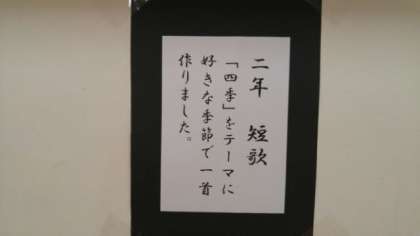 二年 短歌
「四季」をテーマに
好きな季節で一首
作りました。